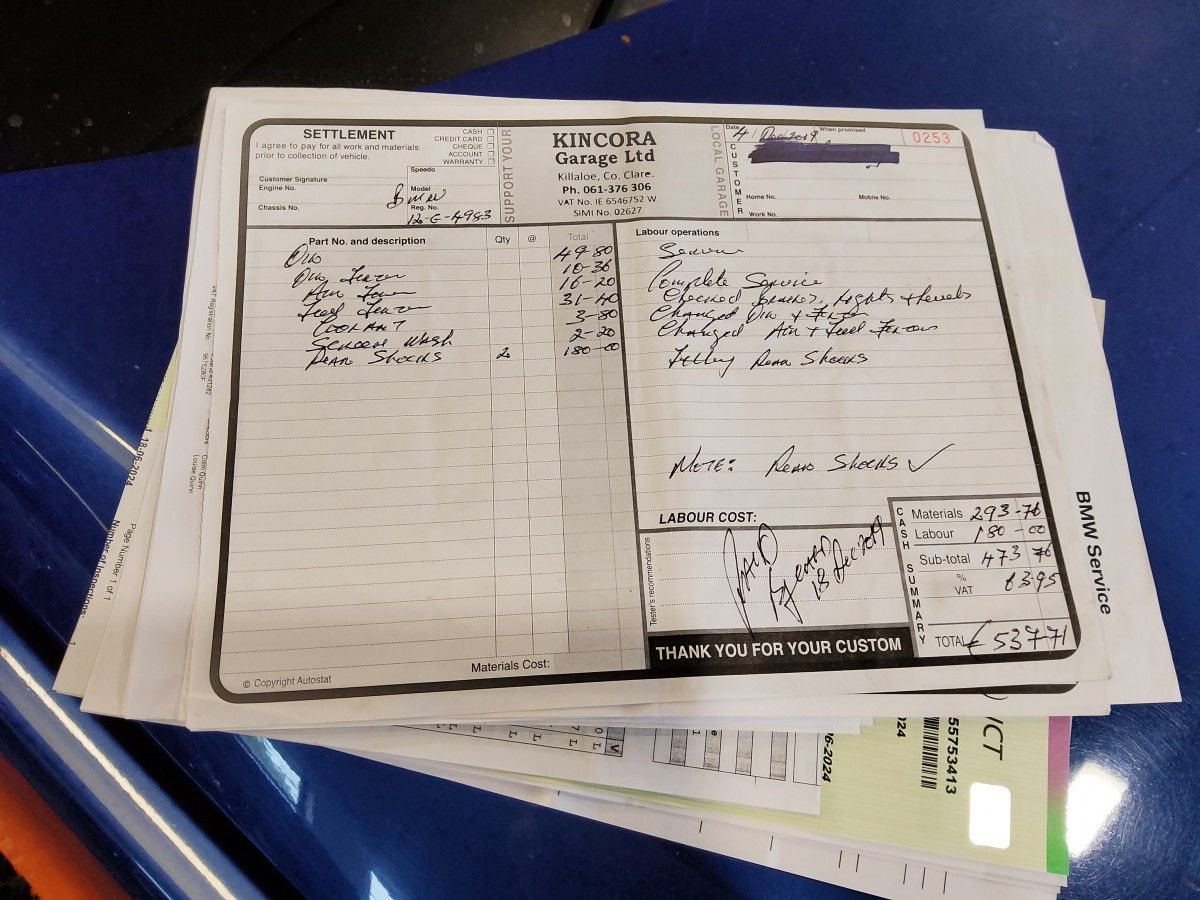 SETTLEMENT
I agree to pay for all work and materials
prior to collection of vehicle.
CASH
CREDIT CARD
CHEQUE
ACCOUNT
WARRANTY
Customer Signature
Engine No.
Chassis No.
Speedo
Model
BMW
Reg. No.
SUPPORT YOUR
KINCORA
Garage Ltd
Killaloe, Co. Clare.
Ph. 061-376 306
VAT No. IE 6546752 W
SIMI No. 02627
LOCAL GARAGE
Date
4 Dec 2019
When promised
0253
CUSTOMER
Home No.
Mobile No.
Work No.
Part No. and description Qty @ Total
49-80
10-36
16-20
31-40
COOLANT 3-80
Screen Wash 2-20
Rear Shocks 2 180-00
Labour operations
Service
Complete Service
Checked Brakes, Lights + Levels
Changed +
Changed Air + Fuel
Rear Shocks
NOTE: Rear Shocks ✓
LABOUR COST:
Tester's recommendations
PAID
18 Dec 2019
CASH SUMMARY
Materials 293-76
Labour 180-00
Sub-total 473 76
% VAT 63.95
TOTAL € 537-71
Materials Cost:
THANK YOU FOR YOUR CUSTOM
© Copyright Autostat
BMW Service
18-06-2024
Page Number 1 of 1
Number of Inspections:
VAT Registration No
Colm Quinn
Louise Quinn
06-2024
024
55753413
ICT